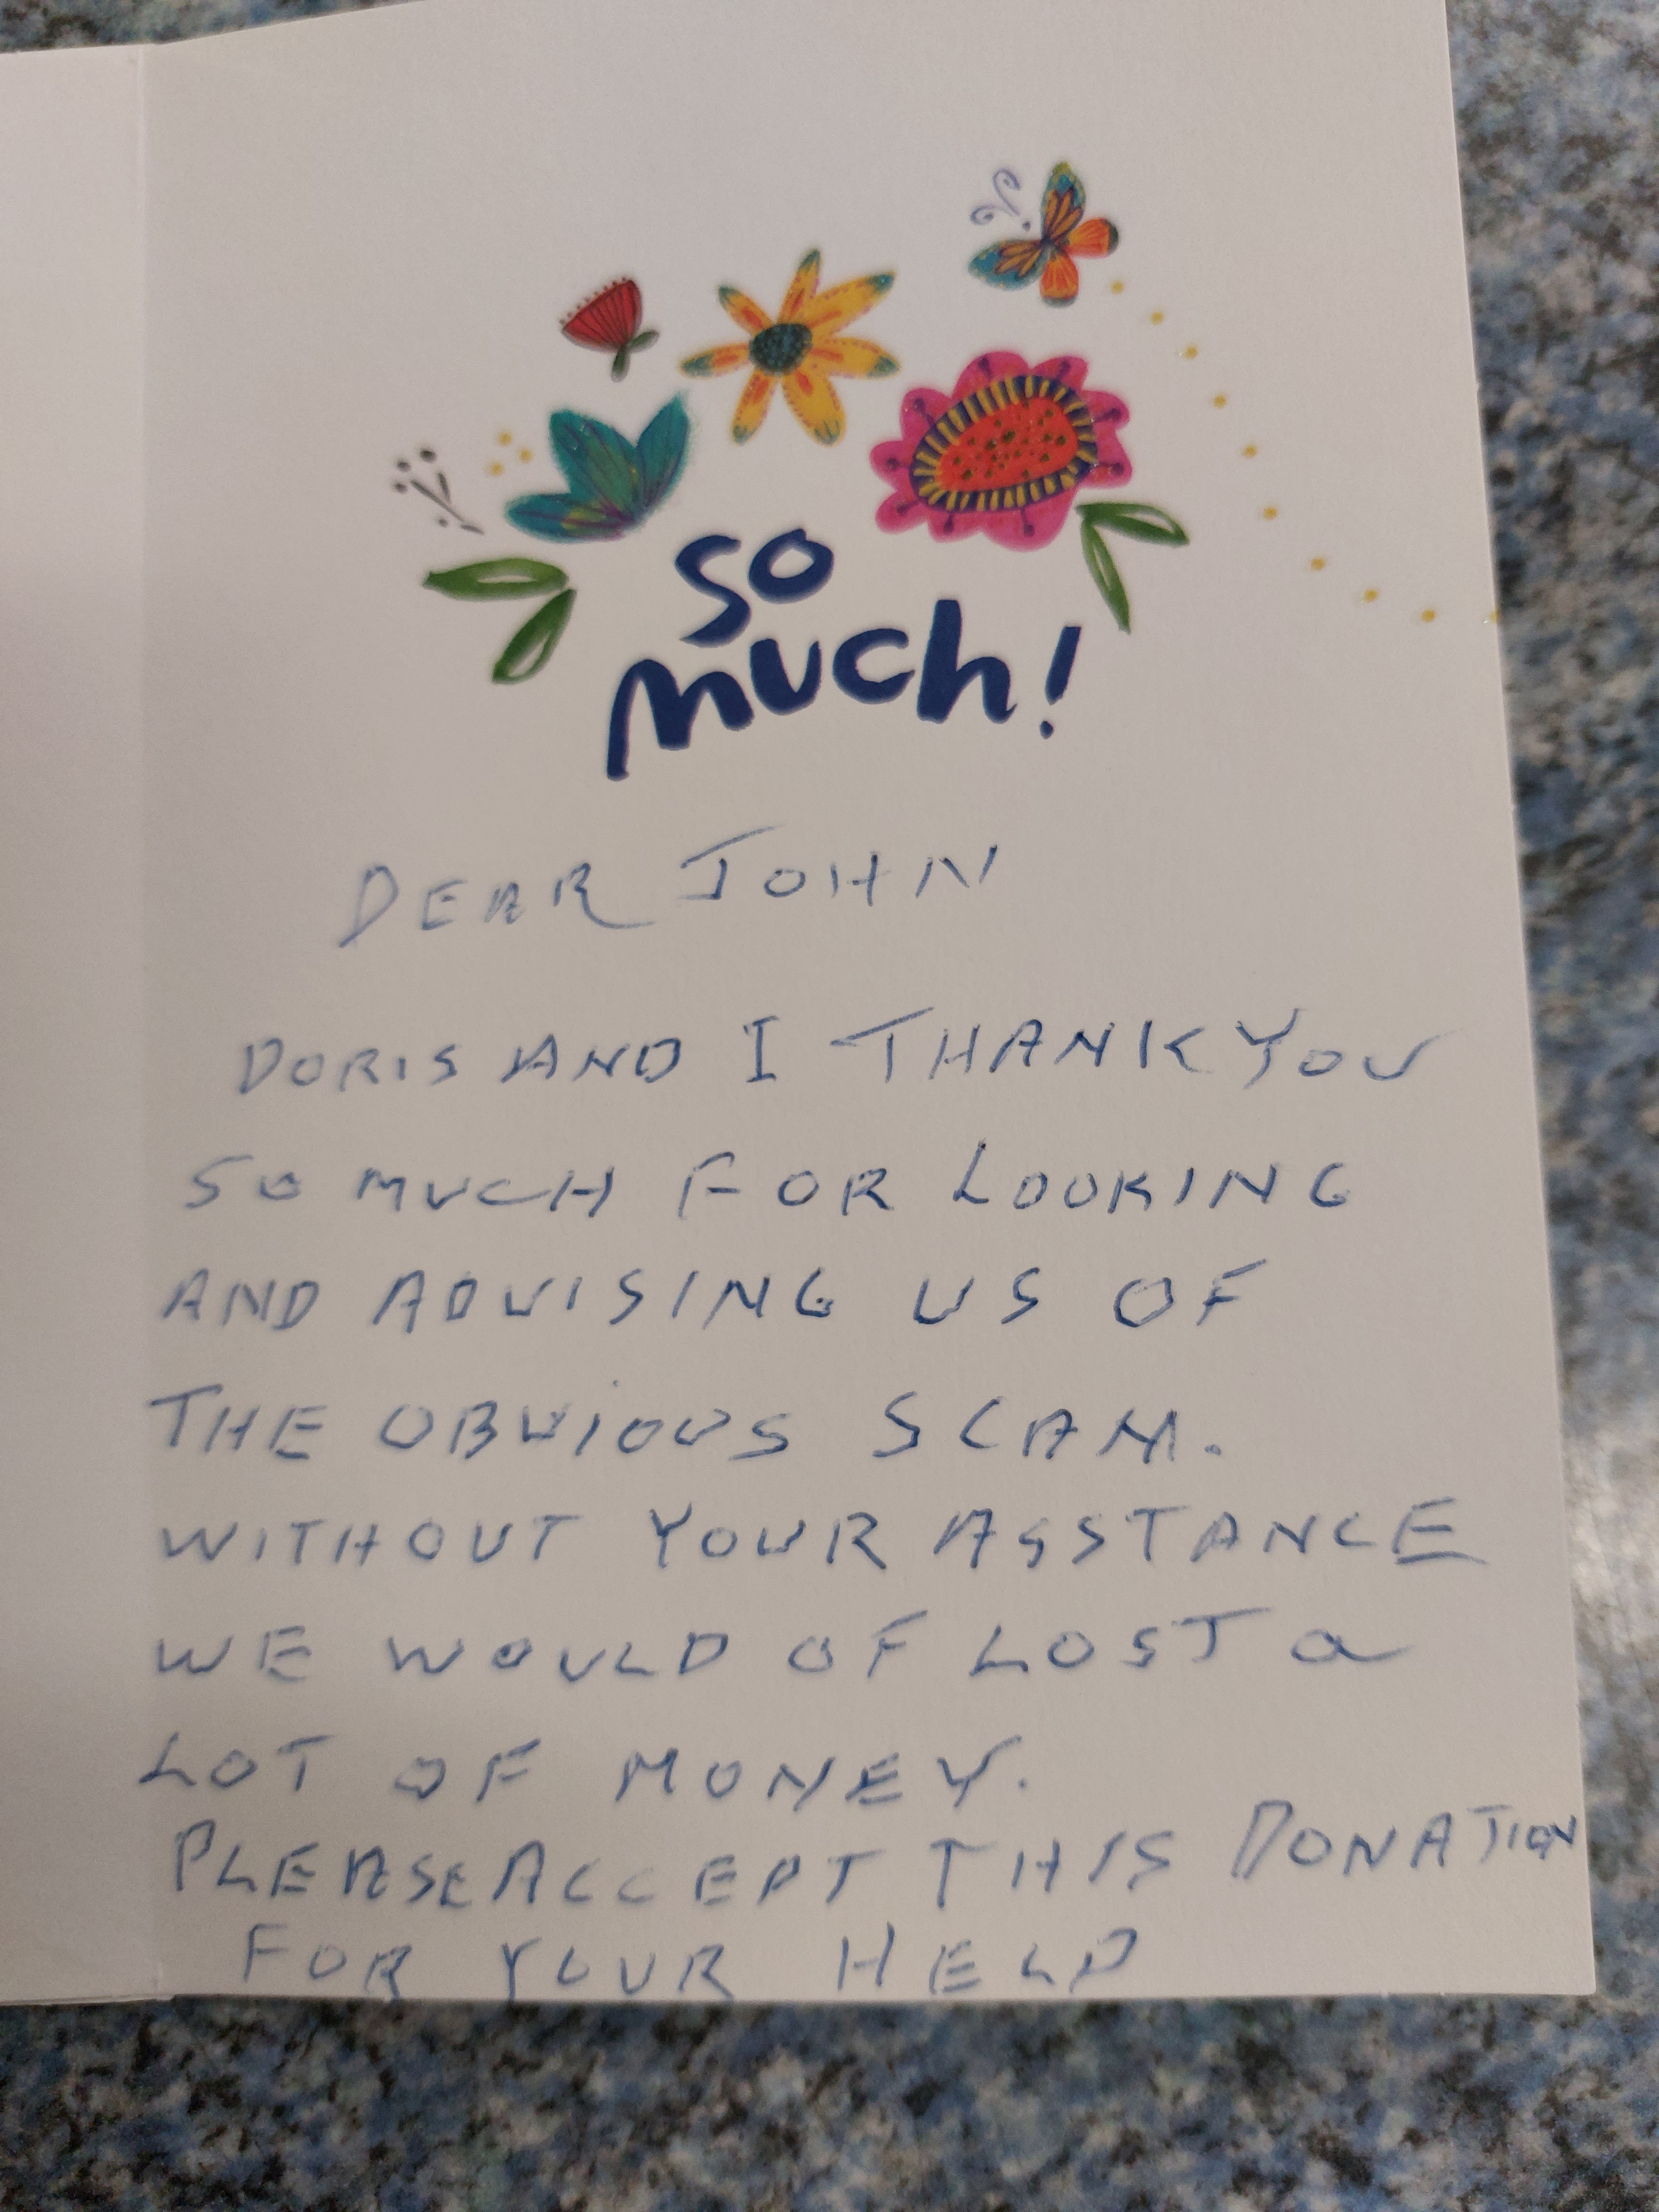 so
much!
DEAR JOHN
DORIS AND I THANK YOU
SO MUCH FOR LOOKING
AND ADVISING US OF
THE OBVIOUS SCAM.
WITHOUT YOUR ASSTANCE
WE WOULD OF LOST a
LOT OF MONEY.
PLEASE ACCEPT THIS DONATION
FOR YOUR HELP